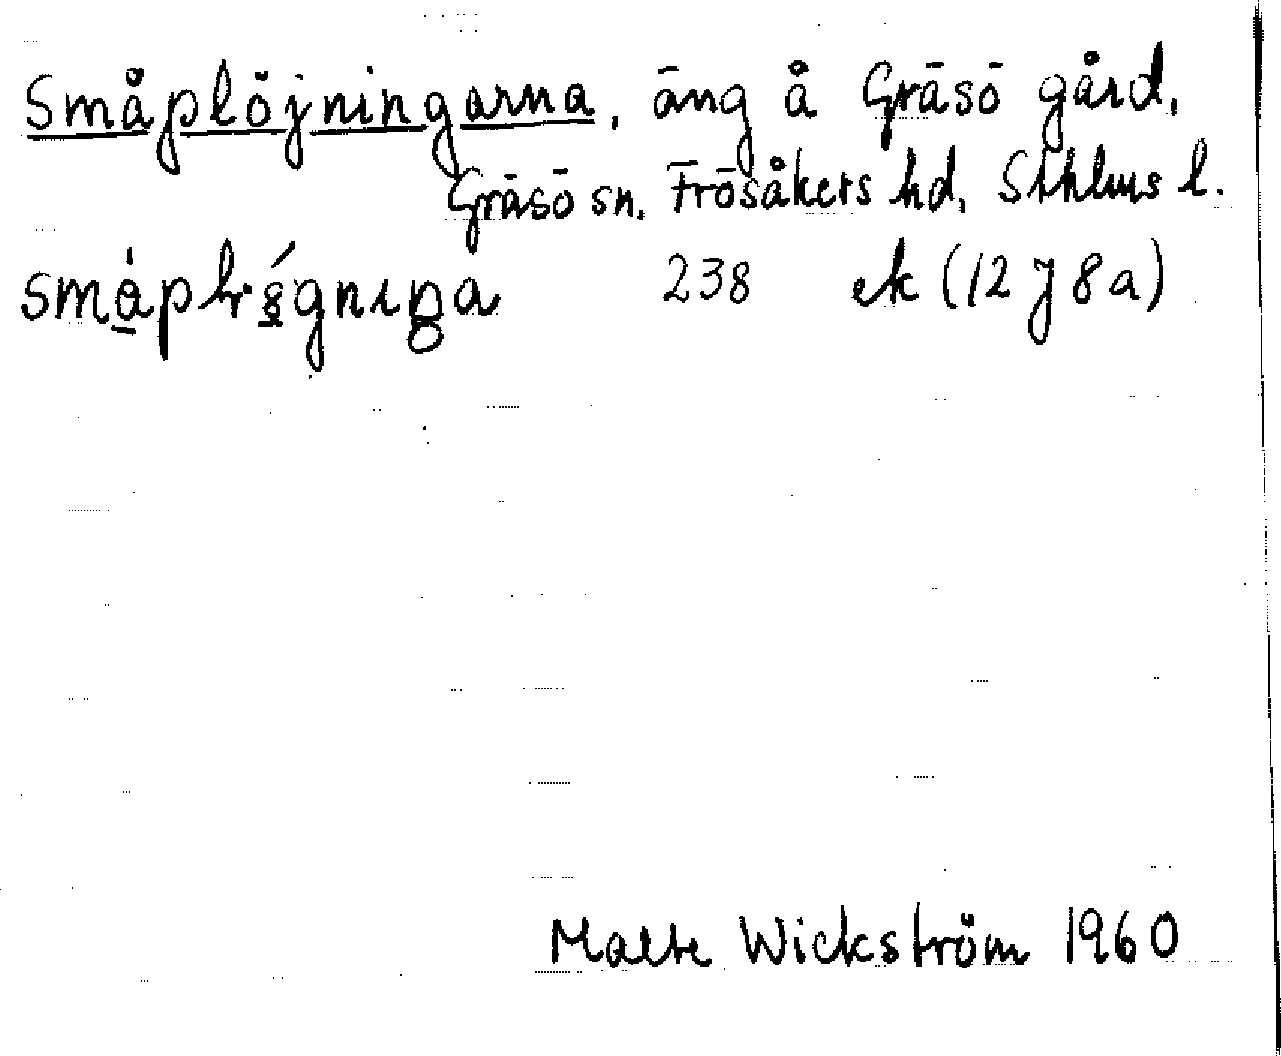 Småplöjningarna, äng å Gräsö gård,
Gräsö sn. Frösåkers hd, Sthlms l.
238 ek (12 J 8a)
Malte Wickström 1960